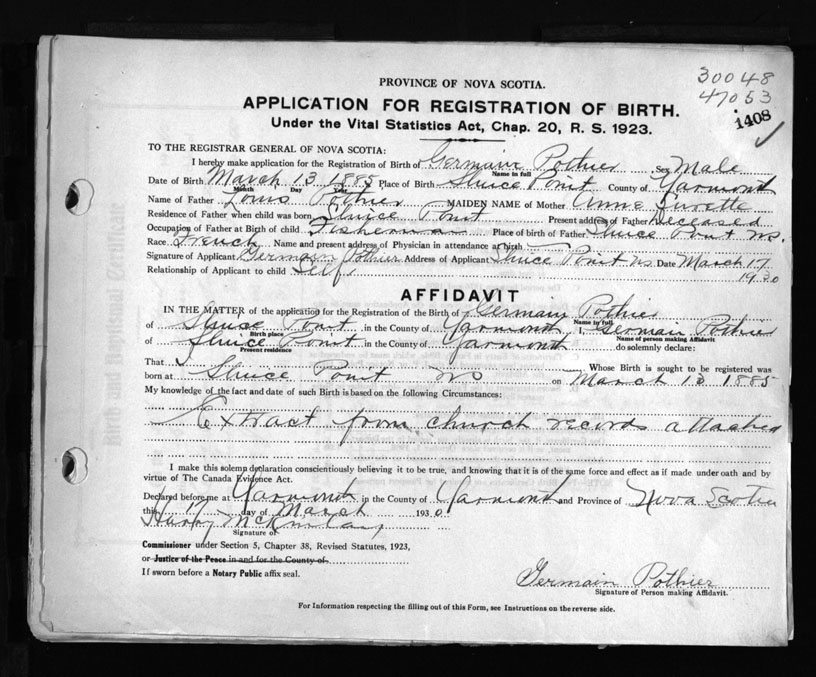 30048
47053
1408
PROVINCE OF NOVA SCOTIA.
APPLICATION FOR REGISTRATION OF BIRTH.
Under the Vital Statistics Act, Chap. 20, R. S. 1923.
TO THE REGISTRAR GENERAL OF NOVA SCOTIA:
I hereby make application for the Registration of Birth of Germain Pothier Sex Male
Name in full
Date of Birth March 13 1885 Place of Birth Sluice Point County of Yarmouth
Month Day Year
Name of Father Louis Pothier MAIDEN NAME of Mother Anne Surette
Residence of Father when child was born Sluice Point Present address of Father Deceased
Occupation of Father at Birth of child Fisherman Place of birth of Father Sluice Point N.S.
Race French Name and present address of Physician in attendance at birth
Signature of Applicant Germain Pothier Address of Applicant Sluice Point NS Date March 17
1930
Relationship of Applicant to child Self
AFFIDAVIT
IN THE MATTER of the application for the Registration of the Birth of Germain Pothier
Name in full
of Sluice Point in the County of Yarmouth I, Germain Pothier
Birth place Name of person making Affidavit
of Sluice Point in the County of Yarmouth do solemnly declare:
Present residence
That I Whose Birth is sought to be registered was
born at Sluice Point NS on March 13 1885
My knowledge of the fact and date of such Birth is based on the following Circumstances:
Extract from church records attached
I make this solemn declaration conscientiously believing it to be true, and knowing that it is of the same force and effect as if made under oath and by
virtue of The Canada Evidence Act.
Declared before me at Yarmouth in the County of Yarmouth and Province of Nova Scotia
this 17 day of March 1930
Harry McKinlay
Signature of
Commissioner under Section 5, Chapter 38, Revised Statutes, 1923,
or Justice of the Peace in and for the County of
If sworn before a Notary Public affix seal.
Germain Pothier
Signature of Person making Affidavit.
For Information respecting the filling out of this Form, see Instructions on the reverse side.